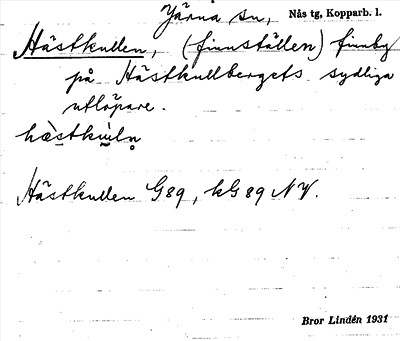 Järna sn, Nås tg, Kopparb. l.
Hästkullen, (finnställen) finnby
på Hästkullbergets sydliga
utlöpare.
Hästkullen G89, kG89 NV.
Bror Lindén 1931